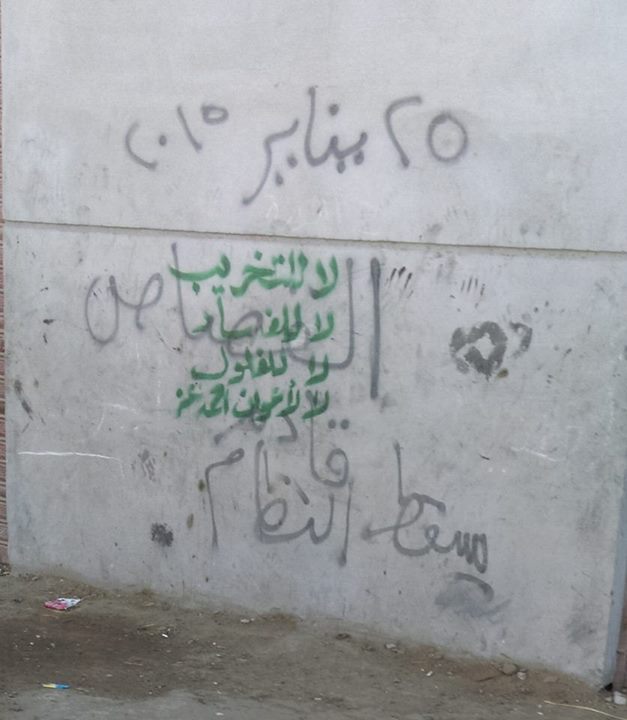 ٢٥ يناير ٢٠١٥
القصاص
لا للتخريب
لا للفساد
لا للفلول
لا لأعوان احمد عز
قادم
يسقط النظام